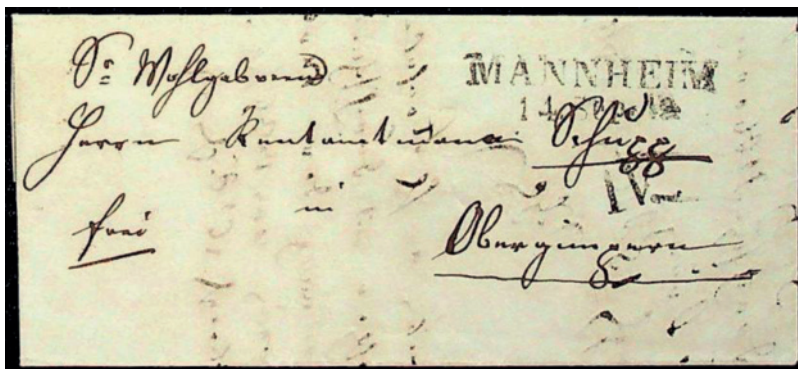 Sr Wohlgeboren
MANNHEIM
14
Herrn Rentamtmann Schupp
IV
frei in
Obergimpern